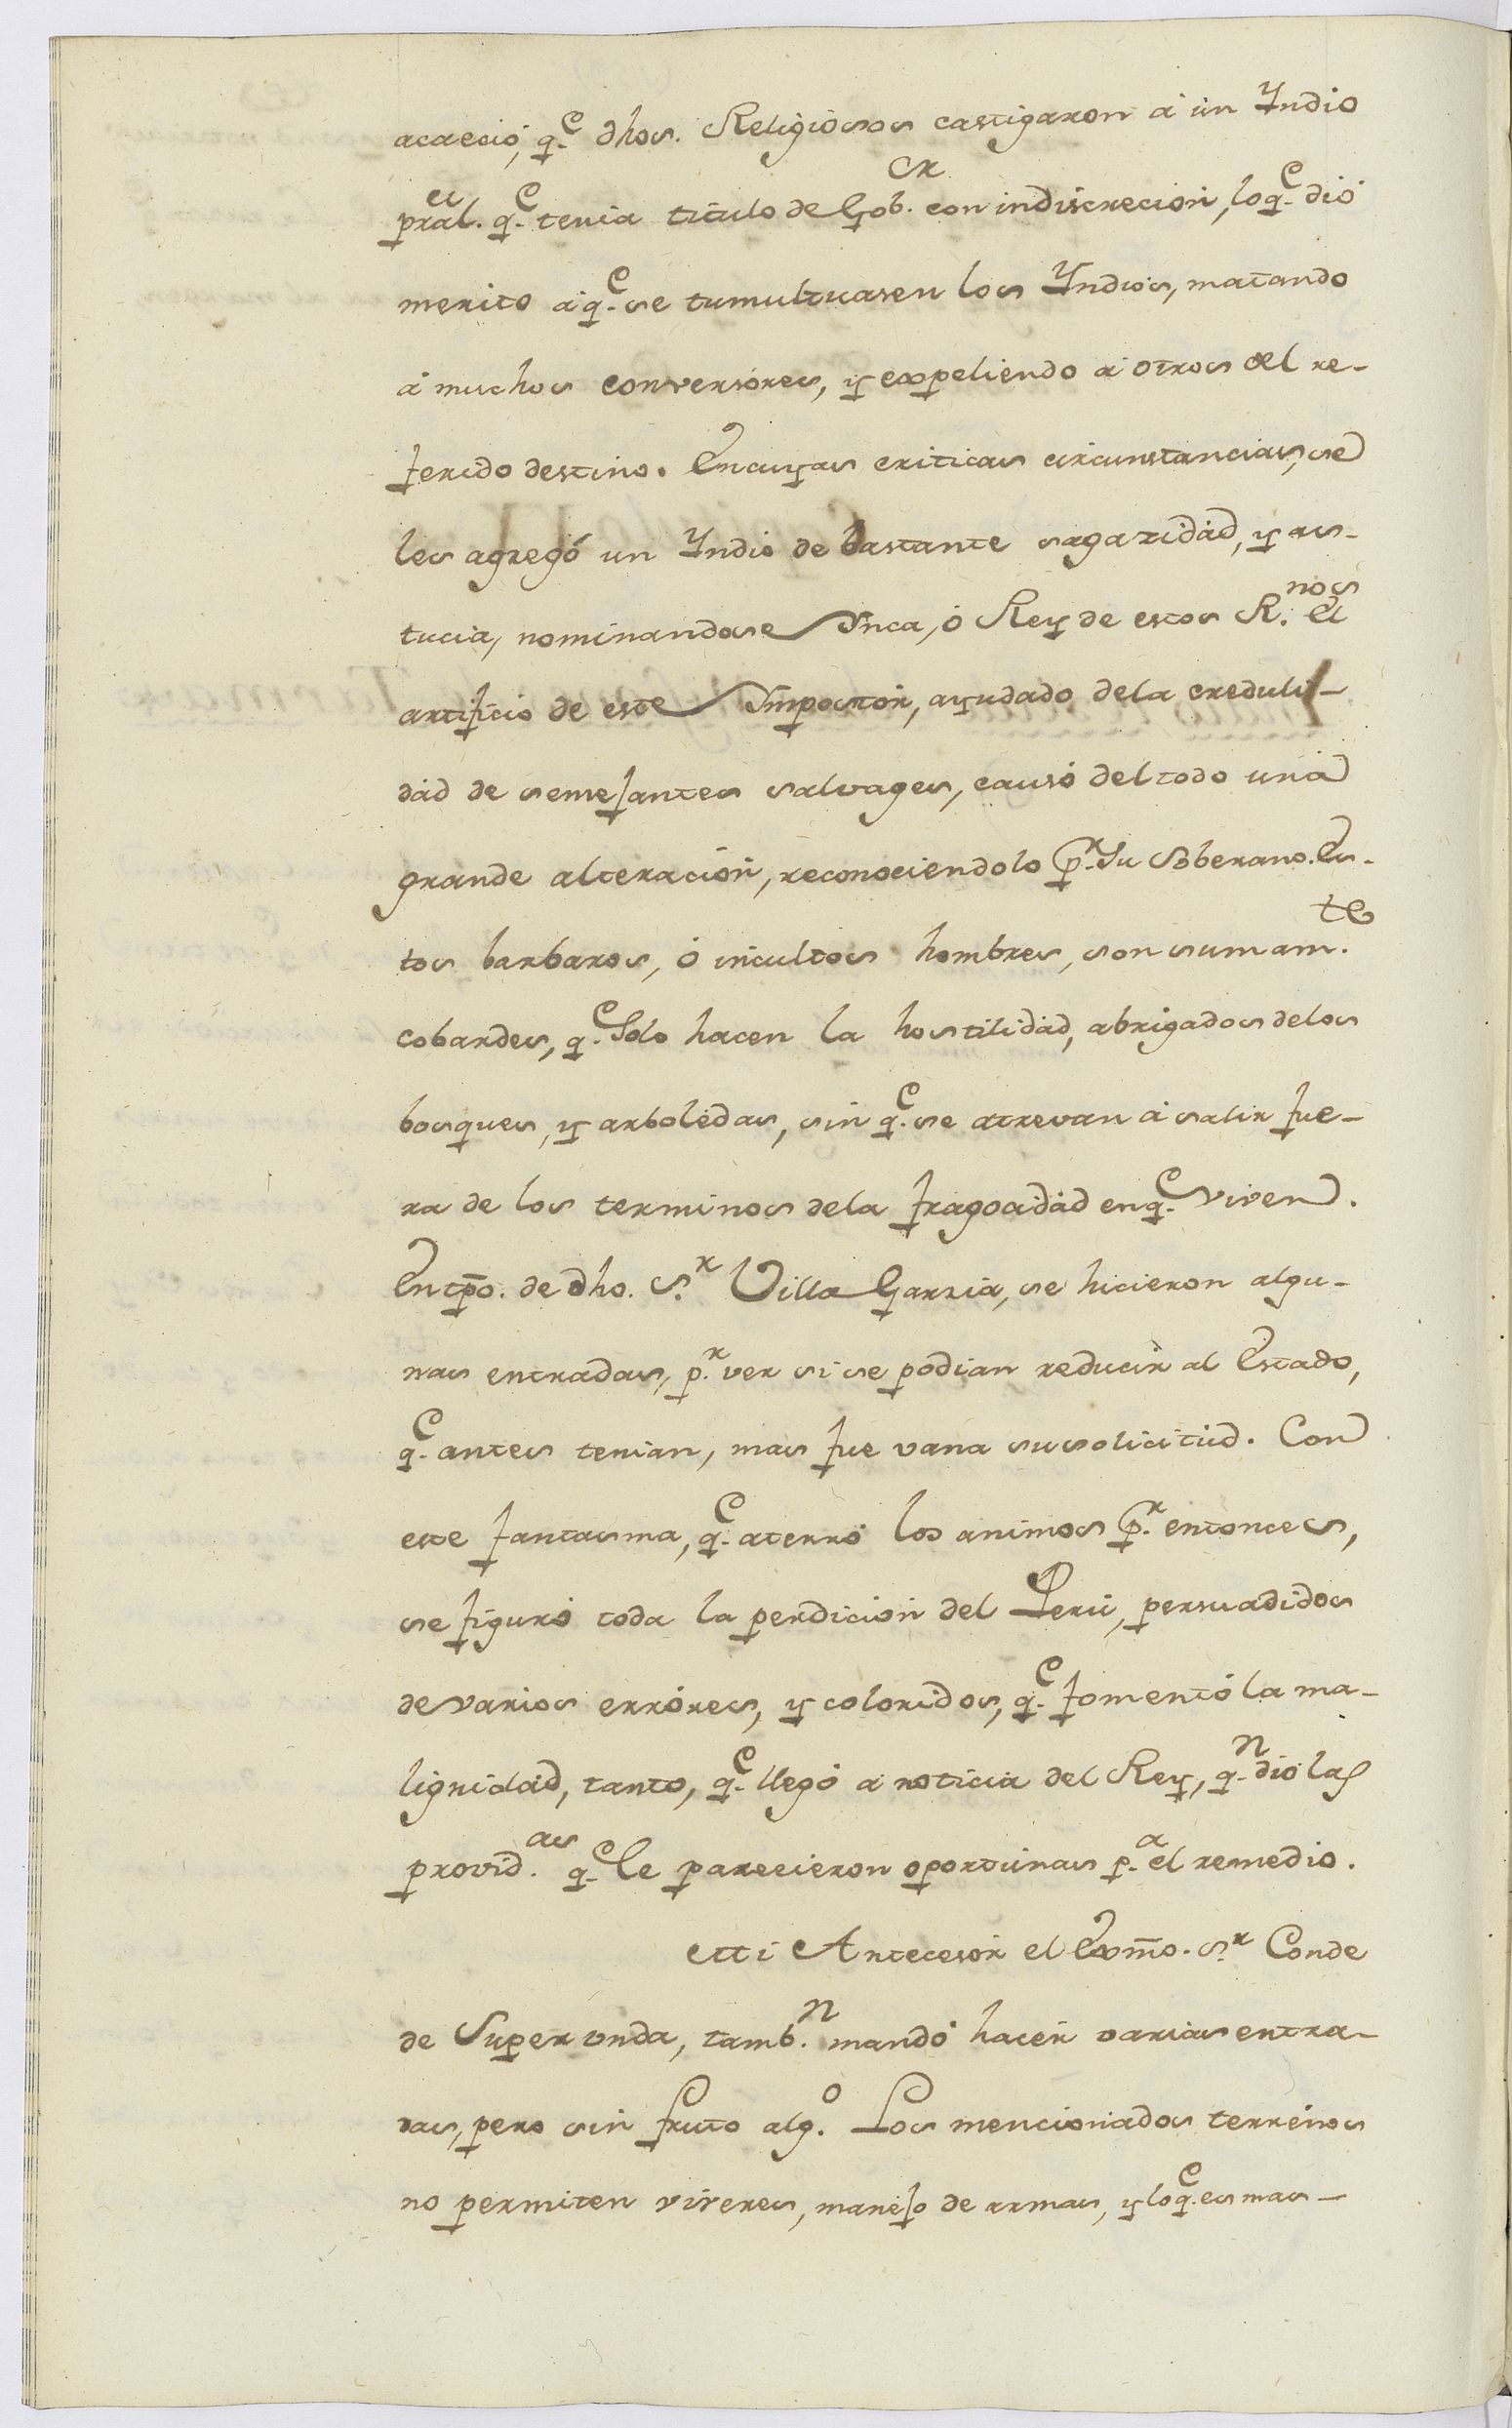 acaeció, q.e dhos. Religiosos castigaron á un Yndio
pral. q.e tenia titulo de Gob.or con indiscrecion, loq.e dió
merito aq.e se tumultuasen los Yndios, matando
á muchos conversores, y expeliendo a otros del re-
ferido destino. En cuyas criticas circunstancias, se
les agregó un Yndio de bastante sagazidad, y as-
tucia, nominandose Ynca, ó Rey de estos R.nos El
artificio de este Ympostor, ayudado dela creduli-
dad de semejantes salvages, causó del todo una
grande alteracion, reconociendolo p.r Su Soberano. Es-
tos barbaros, ó incultos hombres, son sumam.te
cobardes, q.e Solo hacen la hostilidad, abrigados delos
bosques, y arboledas, sin q.e se atrevan á salir fue-
ra de los terminos dela fragosidad enq.e viven.
En tpo. de dho. S.r Villa Garzia, se hicieron algu-
nas entradas, p.r ver si se podian reducir al Estado,
q.e antes tenian, mas fue vana su solicitud. Con
este fantasma, q.e aterró los animos p.r entonces,
se figuró toda la perdicion del Perú, persuadidos
de varios errores, y coloridos, q.e fomentó la ma-
lignidad, tanto, q.e llegó a noticia del Rey, q.n dió las
provid.as q.e le parecieron oportunas p.a el remedio.
Mi Antecesor el Exmo. S.r Conde
de Super unda, tamb.n mandó hacer varias entra-
das, pero sin fruto alg.o Los mencionados terrenos
no permiten viveres, manejo de armas, y loq.e es mas-